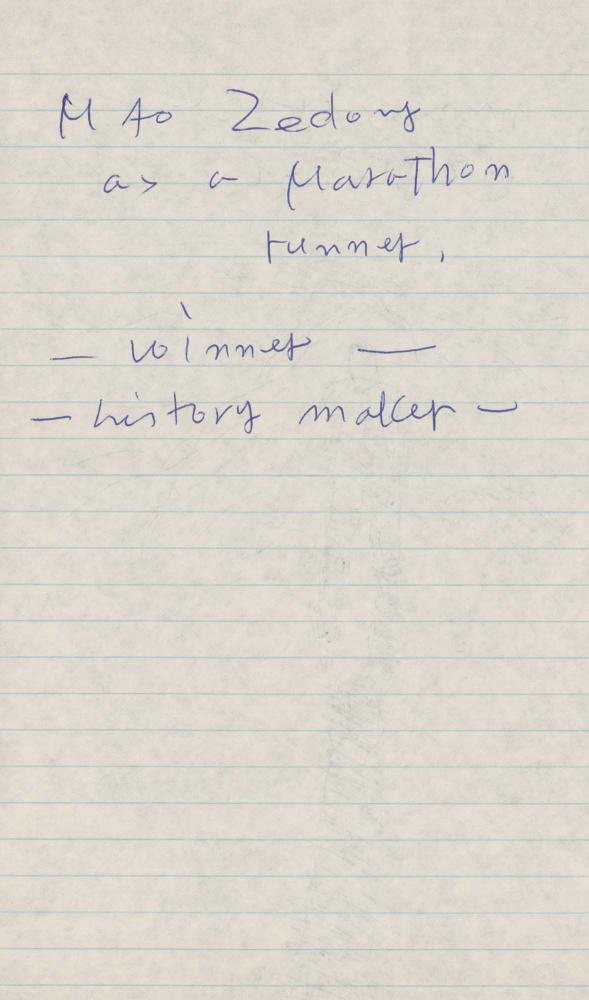 MAo Zedong
as a Marathon
runner,
— winner —
— history maker —